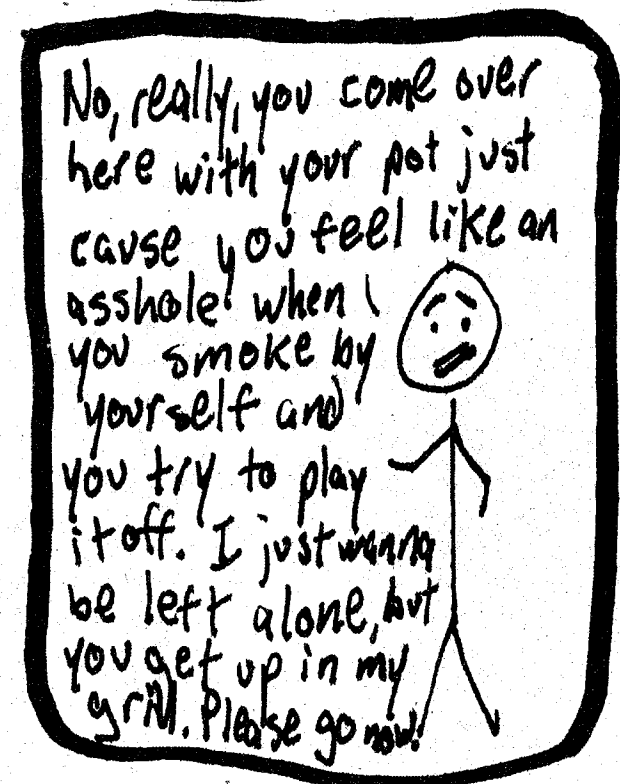 No, really, you come over
here with your pot just
cause you feel like an
asshole when
you smoke by
yourself and
you try to play
it off. I just wanna
be left alone, but
you get up in my
grill. Please go now!